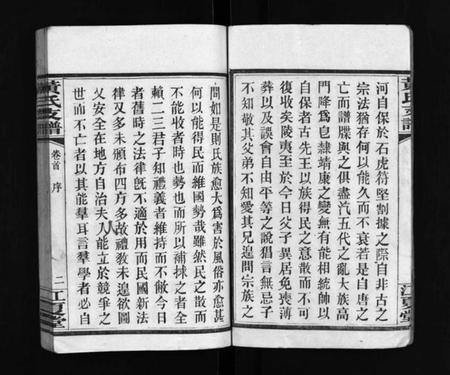 河自保於石虎苻堅割據之際自非古之
宗法猶存何以能久而不衰若是自唐之
亡而譜牒與之俱盡汽五代之亂大族高
門降爲皂隸靖康之變無有能相統帥以
自保者古先王以族得民之意散而不可
復收矣陵夷至於今日父子異居免喪薄
葬以及誤會自由平等之說猖言無忌子
不知敬其父弟不知愛其兄遑問宗族之
間如是則氏族愈大爲害於風俗亦愈甚
何以能得民而維國勢哉雖然民之散而
不能收者時也勢也而所以補捄之者全
賴二三君子知禮義者維持而不敝今日
者舊時之法律旣不適於用而民國新法
律又多未頒布四方多故禮教未遑欲圖
乂安全在地方自治夫人能立於競爭之
世而不亡者以其能羣耳言羣學者必自
黃氏支譜
卷首 序
二
江夏堂
黃氏支譜
江夏堂